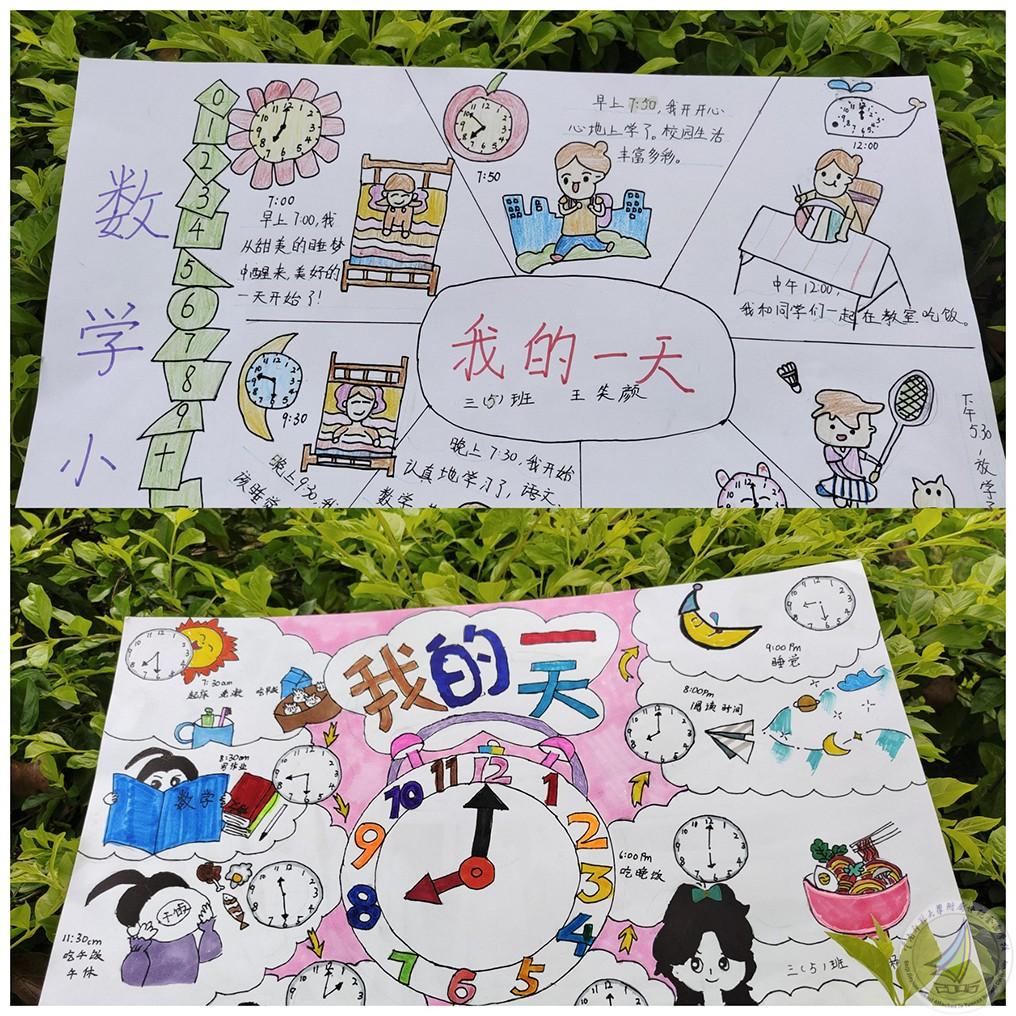 数
学
小
0
1
2
3
4
5
6
7
8
9
十
7:00
早上7:00,我
从甜美的睡梦
中醒来,美好的
一天开始了!
7:50
早上7:50,我开开心
心地上学了。校园生活
丰富多彩。
12:00
中午12:00,
我和同学们一起在教室吃饭。
我的一天
三(5)班 王笑颜
9:30
晚上9:30,我
该睡觉
晚上7:30,我开始
认真地学习了,语文、
数学
下午5:30,放学了
我的一天
7:30am
起床 洗漱 吃早饭
8:30am
写作业
数学
11:30am
吃午饭
午休
午饭
9:00Pm
睡觉
8:00Pm
阅读时间
6:00Pm
吃晚饭
12
1
2
3
4
5
6
7
8
9
10
11
三(5)班